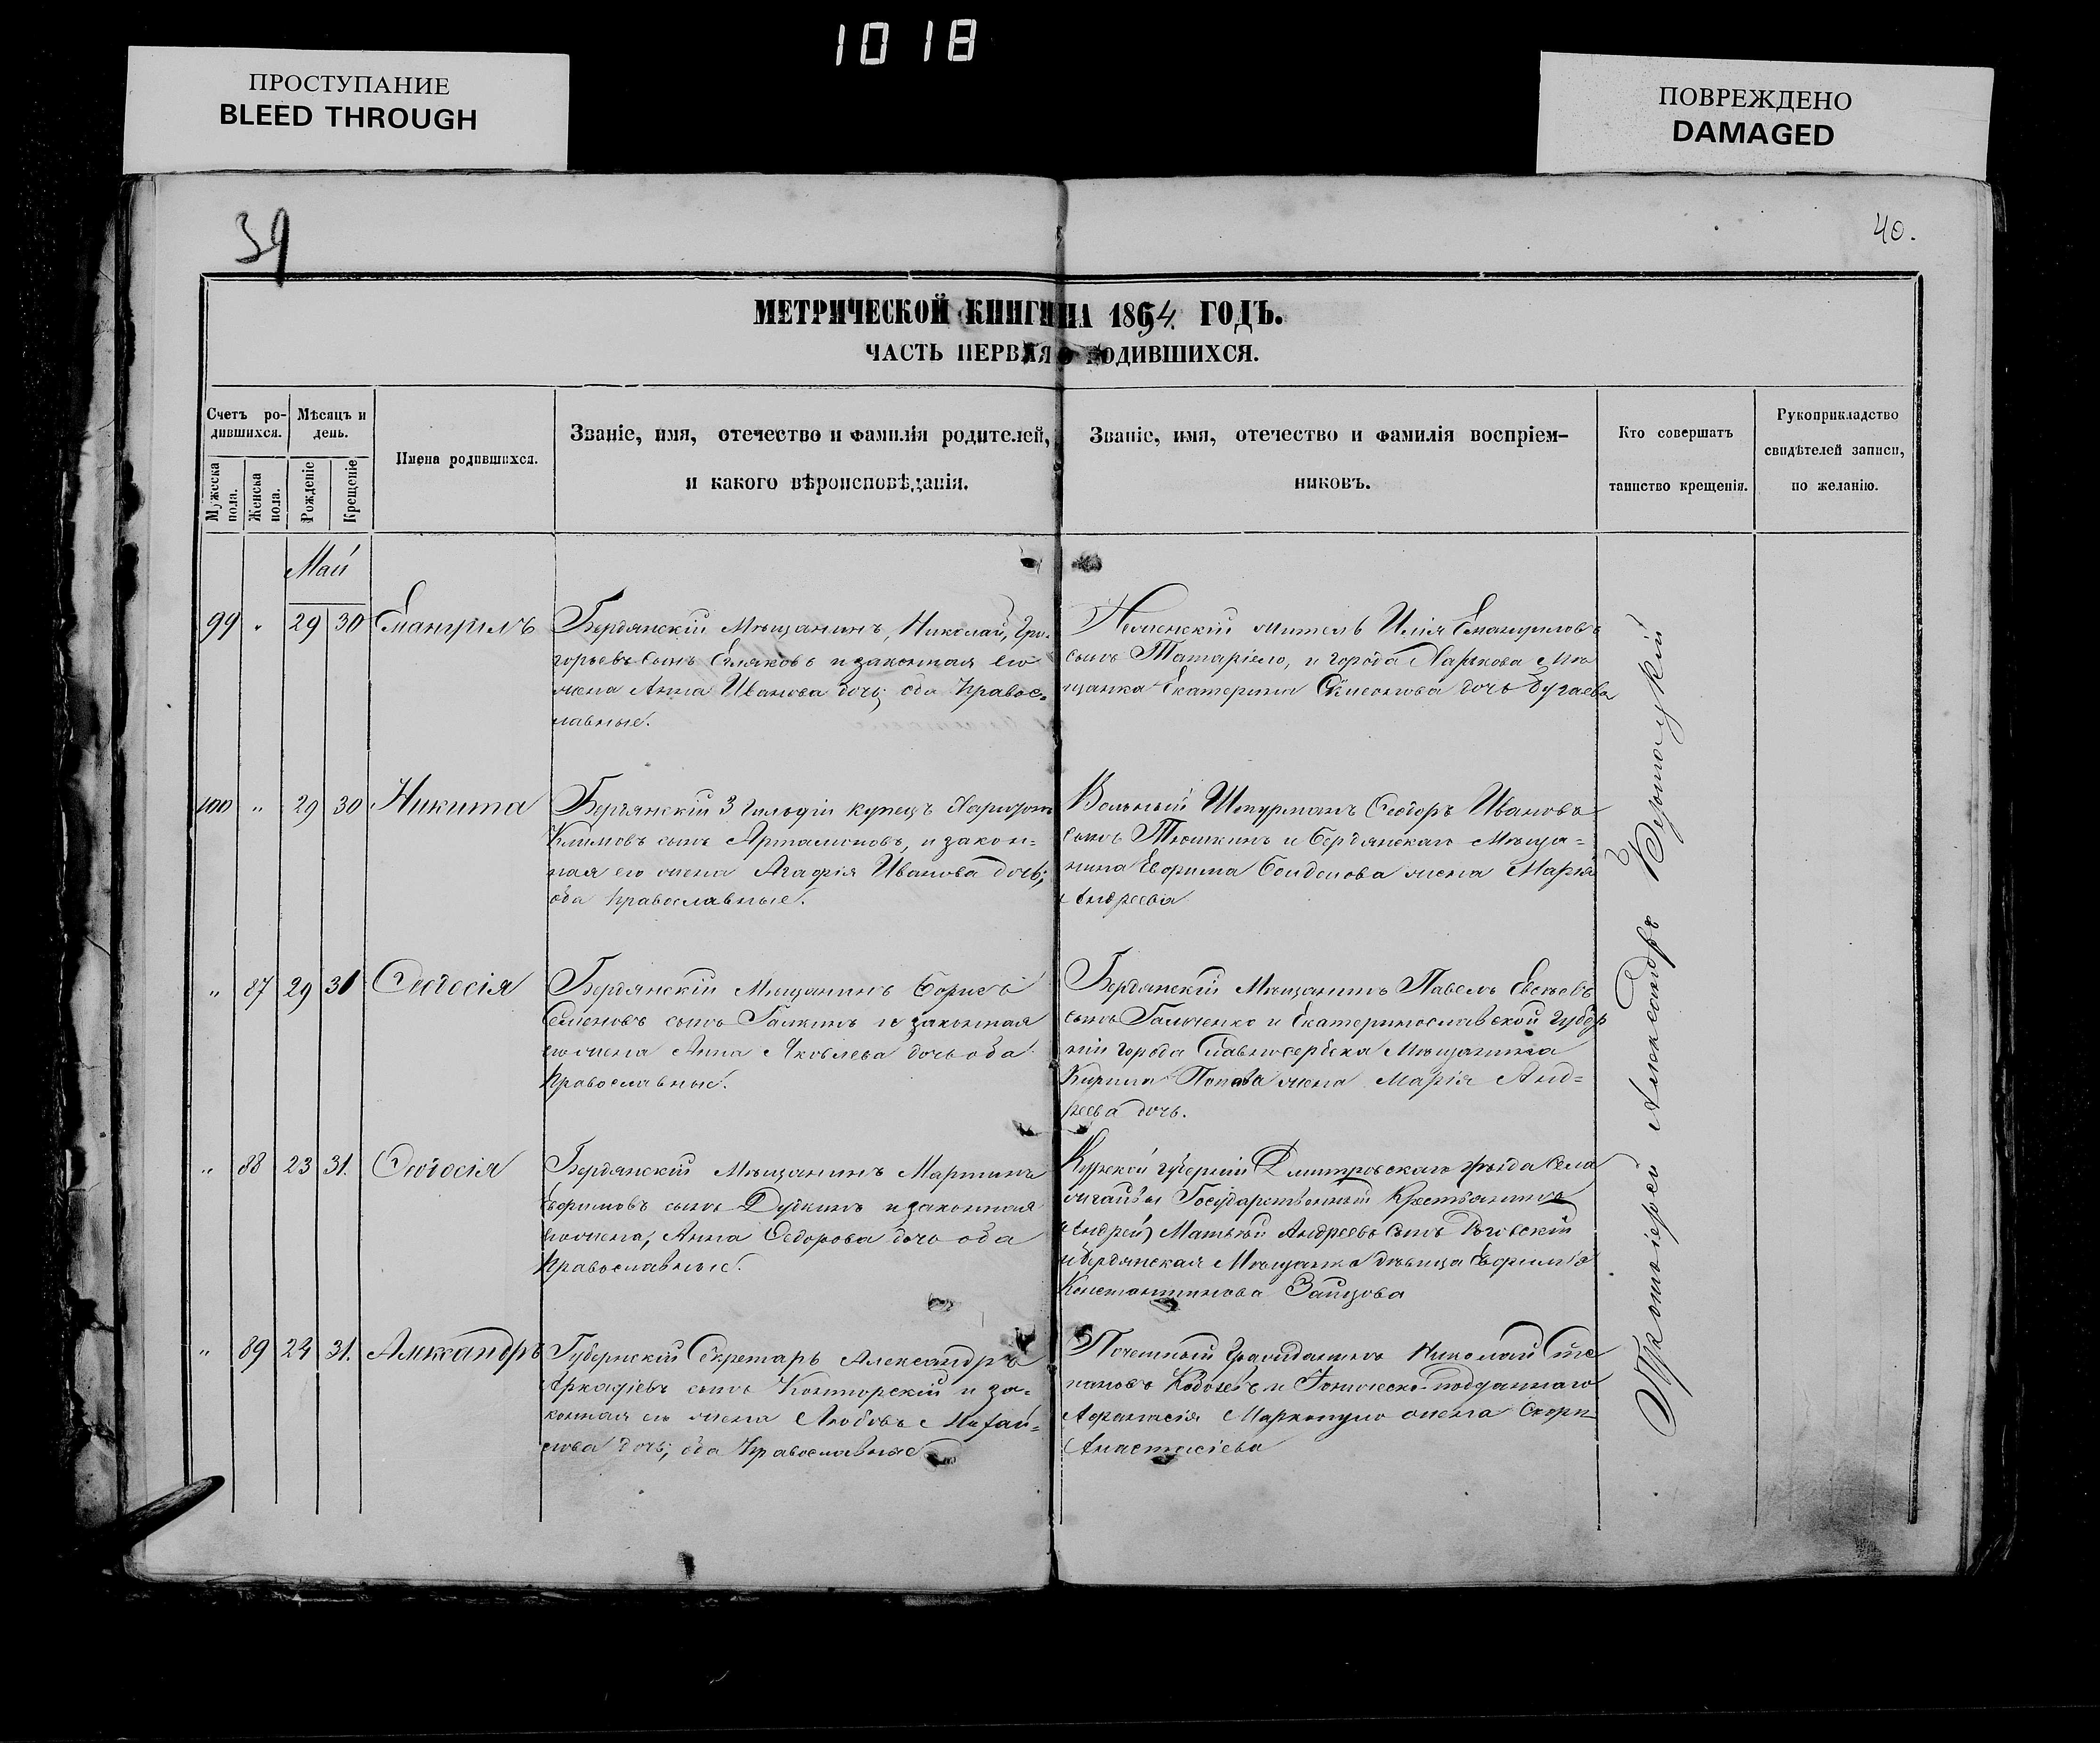 1018
ПРОСТУПАНИЕ
BLEED THROUGH
ПОВРЕЖДЕНО
DAMAGED
39
40.
МЕТРИЧЕСКОЙ КНИГИ НА 1864 ГОДЪ.
ЧАСТЬ ПЕРВАЯ О РОДИВШИХСЯ.
Счетъ ро-
дившихся.
Мѣсяцъ и
день.
Мужеска
пола.
Женска
пола.
Рожденіе
Крещеніе
Имена родившихся.
Званіе, имя, отечество и фамилія родителей,
и какого вѣроисповѣданія.
Званіе, имя, отечество и фамилія воспріем-
никовъ.
Кто совершатъ
таинство крещенія.
Рукоприкладство
свидѣтелей записи,
по желанію.
Май
99 " 29 30
Бердянскій Мѣщанинъ, Николай, Гри-
горьевъ сынъ и законная его
жена Анна Иванова дочь; оба Правос-
лавные.
Илія
сынъ и города Харькова Мѣ
щанка Екатерина дочь Бугаева
100 " 29 30 Никита
Бердянскій 3 Гильдіи купецъ Харитон
Климовъ сынъ Артамоновъ, и закон=
ная его жена Агафія Иванова дочь;
оба Православные.
Вольный Штурманъ Ѳеодоръ Ивановъ
сынъ Тюшкинъ и Бердянскаго Мѣща=
нина Ефрима жена Марія
Андреева
" 87 29 31 Ѳеодосія
Бердянскій Мѣщанинъ Борисъ
Семеновъ сынъ Галкинъ и законная
его жена Анна Яковлева дочь оба
Православные.
Бердянскій Мѣщанинъ Павелъ
сынъ Гальченко и Екатеринославской Губер
ніи города Славяносербска Мѣщанина
Кирила Попова жена Марія Анд=
реева дочь.
" 88 23 31. Ѳеодосія
Бердянскій Мѣщанинъ Мартинъ
Ефимовъ сынъ Дудкинъ и законная
его жена, Анна Ѳедорова дочь оба
Православные.
Курской губерніи Дмитровскаго уѣзда Села
Государственный Крестьянинъ
(Андрей) Матвѣй Андреевъ сынъ
и Бердянская Мѣщанка дѣвица Ефимія
Константинова Зайцова
" 89 24 31. Александръ
Губернскій Секретарь Александръ
Аркадіевъ сынъ Конторскій и за=
конная его жена Любовь Михай=
лова дочь; оба Православные
Почетный Гражданинъ Николай Сте
пановъ и Іоническо-подданнаго
Афанасія Маркопуло жена
Анастасіева
Протоіерей Александръ